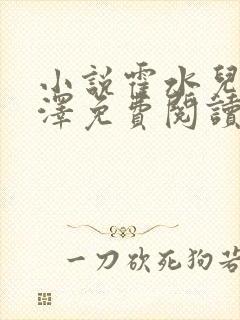 小説霍水兒
澤免費閱讀
一刀砍死狗若